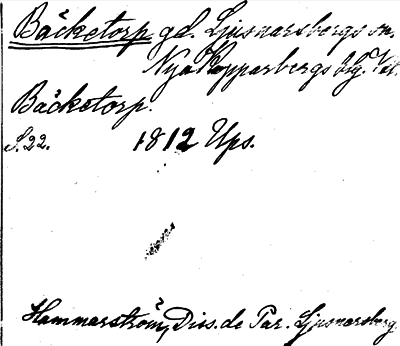 Bäcketorp gd. Ljusnarsbergs sn,
Nya Kopparbergs blg. Vstl.
Bäcketorp.
S. 22. 1812 Ups.
Hammarström, Diss. de Par. Ljusnarsberg.